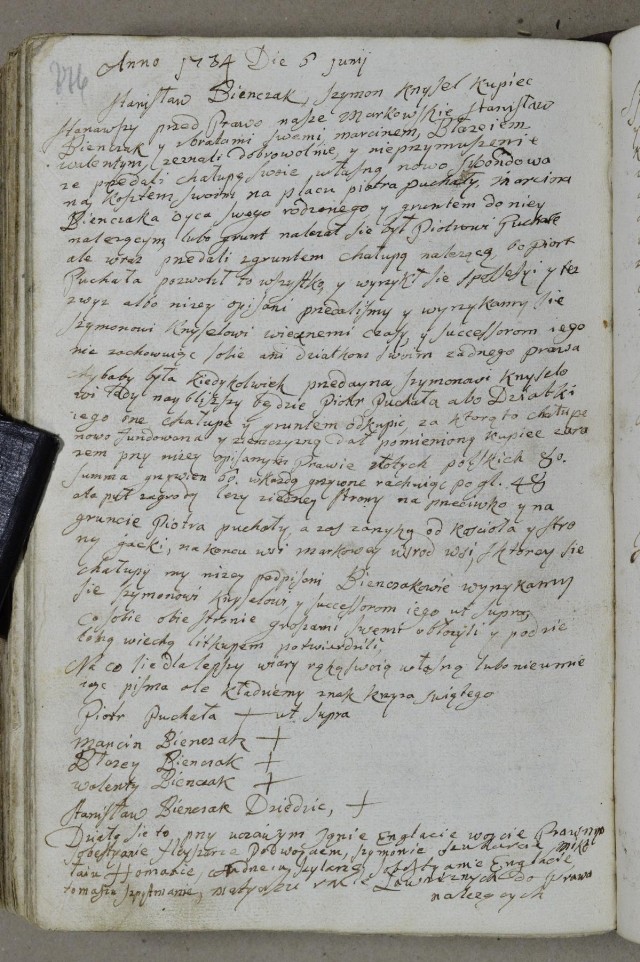 276
Anno 1734 Die 6 junij
Stanisław Bienczak, Szymon Knysel Kupiec
Stanąwszy przed Prawo nasze Markowskie Stanisław
Bienczak y zbratami swemi, marcinem, Błazejem
walentym, zeznali dobrowolnie, y nieprzymuszenie
ze przedali chałupę swoię własną nowo
na, kosztem swoim na placu piotra puchały, Marcina
Bienczaka oyca swego rodzonego y gruntem do niey
nalezącym, lubo grunt nalezał sie był Piotrowi Puchale
ale wraz przedali zgruntem chałupę nalezącą, bo piotr
Puchała pozwolił to wszystko y wyrzykł sie possessyi y tez
zwyz albo nizey opisani przedalismy y wyrzykamy sie
Szymonowi Knyselowi wiecznemi czasy y successorom iego
nie zachowuiąc sobie ani dziatkom swoim zadnego prawa
chybaby była kiedykolwiek przedayna Szymonowi Knyselo
wi tedy naybliższy będzie Piotr Puchała albo Dziatki
iego one chałupe y gruntem odkupic, za ktorą to chałupe
nowo fundowaną y dał pomieniony kupiec zara
zem przy nizey opisanym Prawie złotych polskich 80.
Summa grzywien każdą grzywne rachuiąc po gł. 48
ta puł zagrody lezy ziedney strony na przeciwko y na
gruncie Piotra puchały, a zas zanyką od kościoła y stro
ny jacki, na koncu wsi markowey wśrod wsi, z ktorey sie
chałupy my nizey podpisani Bienczakowie wyrzykamy
sie szymonowi Knyselowi y successorom iego ut supra,
co sobie obie stronie groszami swemi obłozyli y
wiechą litkupem potwierdzili,
Na co sie dla lepszy wiary ręką swoią własną lubo nieumie
iąc pisma ale kładziemy znak krzyza swiętego
Piotr Puchała + ut supra
Marcin Bienczak +
Błazey Bienczak +
walenty Bienczak +
Stanisław Bienczak Dziedzic, +
Działo sie to przy uczciwym Ignie Englacie woycie Prawnym
Sobestyanie Podwoycem, szymonie Szukarcie, miko
łaiu Homanie, Szylarze, Sobestyanie Englacie,
tomaszu Szpytmanie, Ławniznych do prawa
nalezących